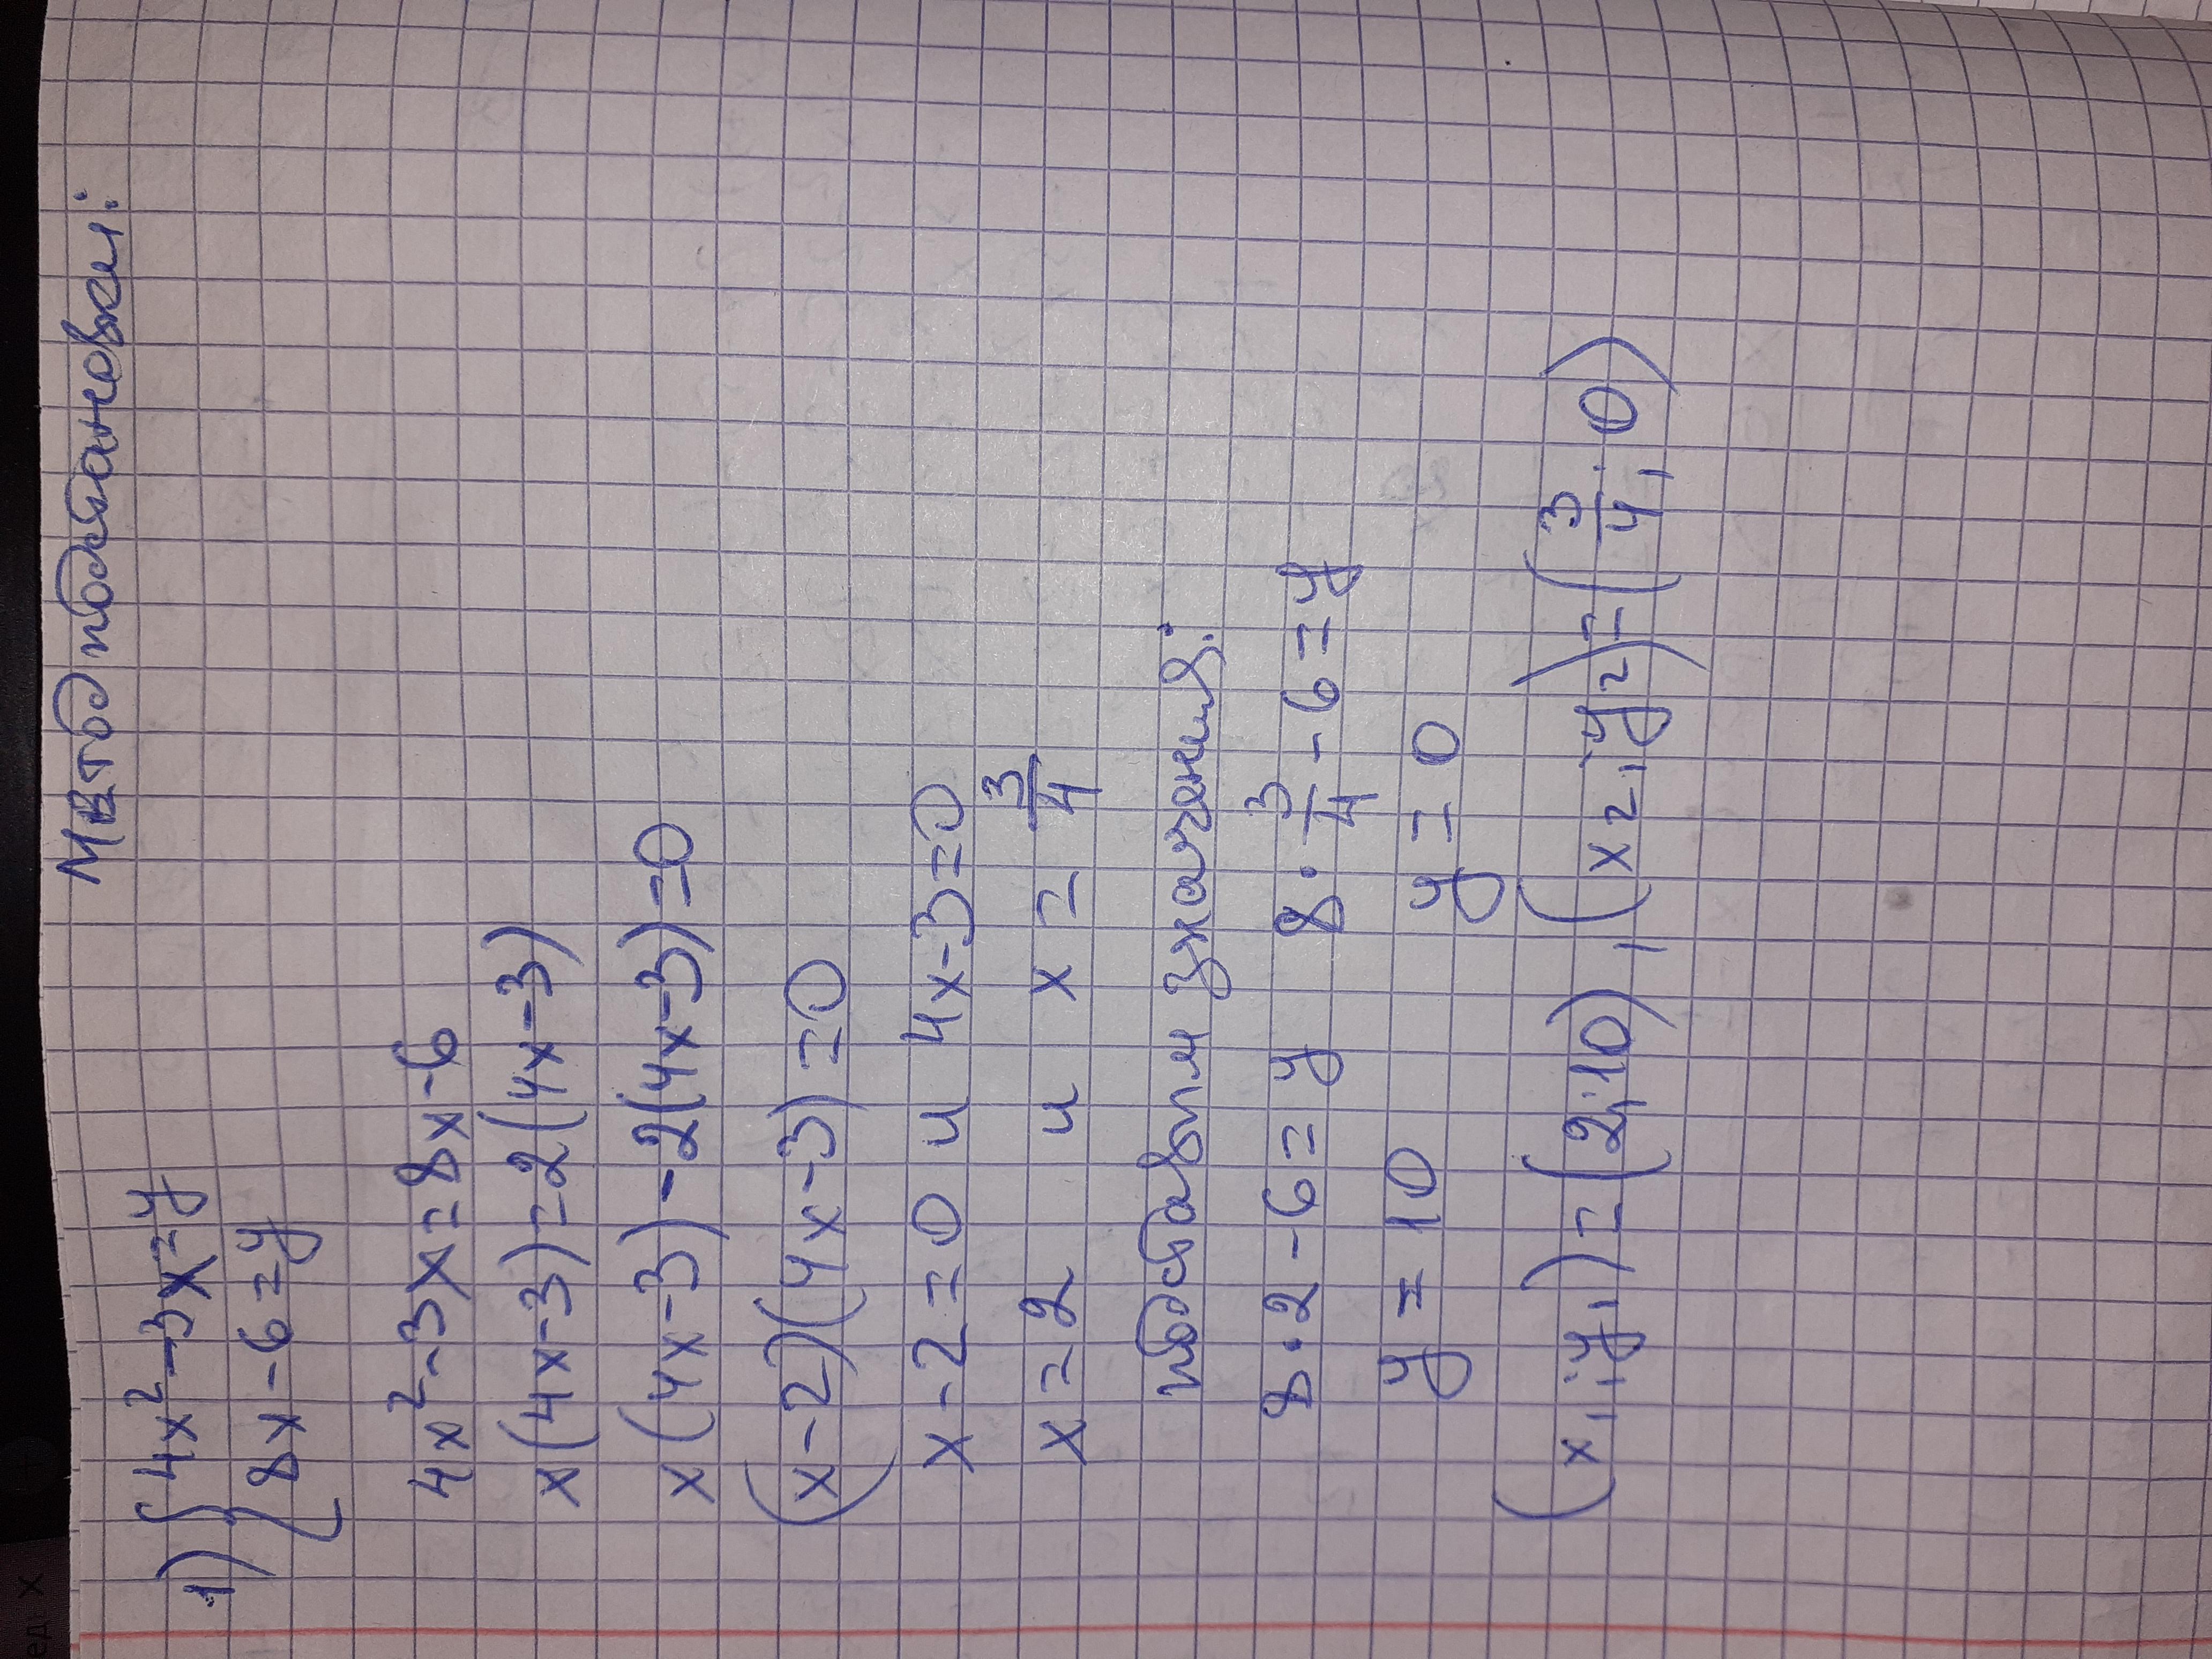 Метод подстановки:
1) { 4x² - 3x = y
8x - 6 = y
4x² - 3x = 8x - 6
x(4x - 3) = 2(4x - 3)
x(4x - 3) - 2(4x - 3) = 0
(x - 2)(4x - 3) = 0
x - 2 = 0 и 4x - 3 = 0
x = 2 и x = 3/4
подставим значения:
8 · 2 - 6 = y 8 · 3/4 - 6 = y
y = 10 y = 0
(x₁; y₁) = (2; 10), (x₂; y₂) = (3/4; 0)